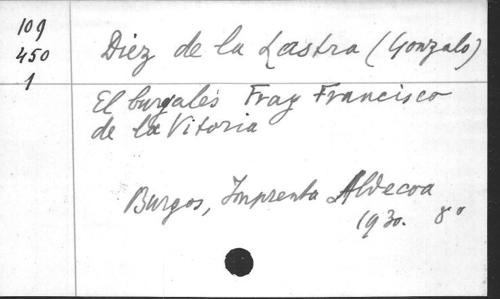 109
450
1
Diez de la Lastra (Gonzalo)
El burgalés Fray Francisco
de la Vitoria
Burgos, Imprenta Aldecoa
1930. 8º